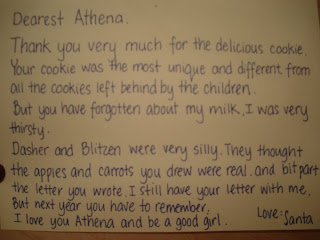 Dearest Athena.
Thank you very much for the delicious cookie.
Your cookie was the most unique and different from
all the cookies left behind by the children.
But you have forgotten about my milk, I was very
thirsty.
Dasher and Blitzen were very silly. They thought
the apples and carrots you drew were real. and bit part
the letter you wrote. I still have your letter with me.
But next year you have to remember.
I love you Athena and be a good girl. Love: Santa